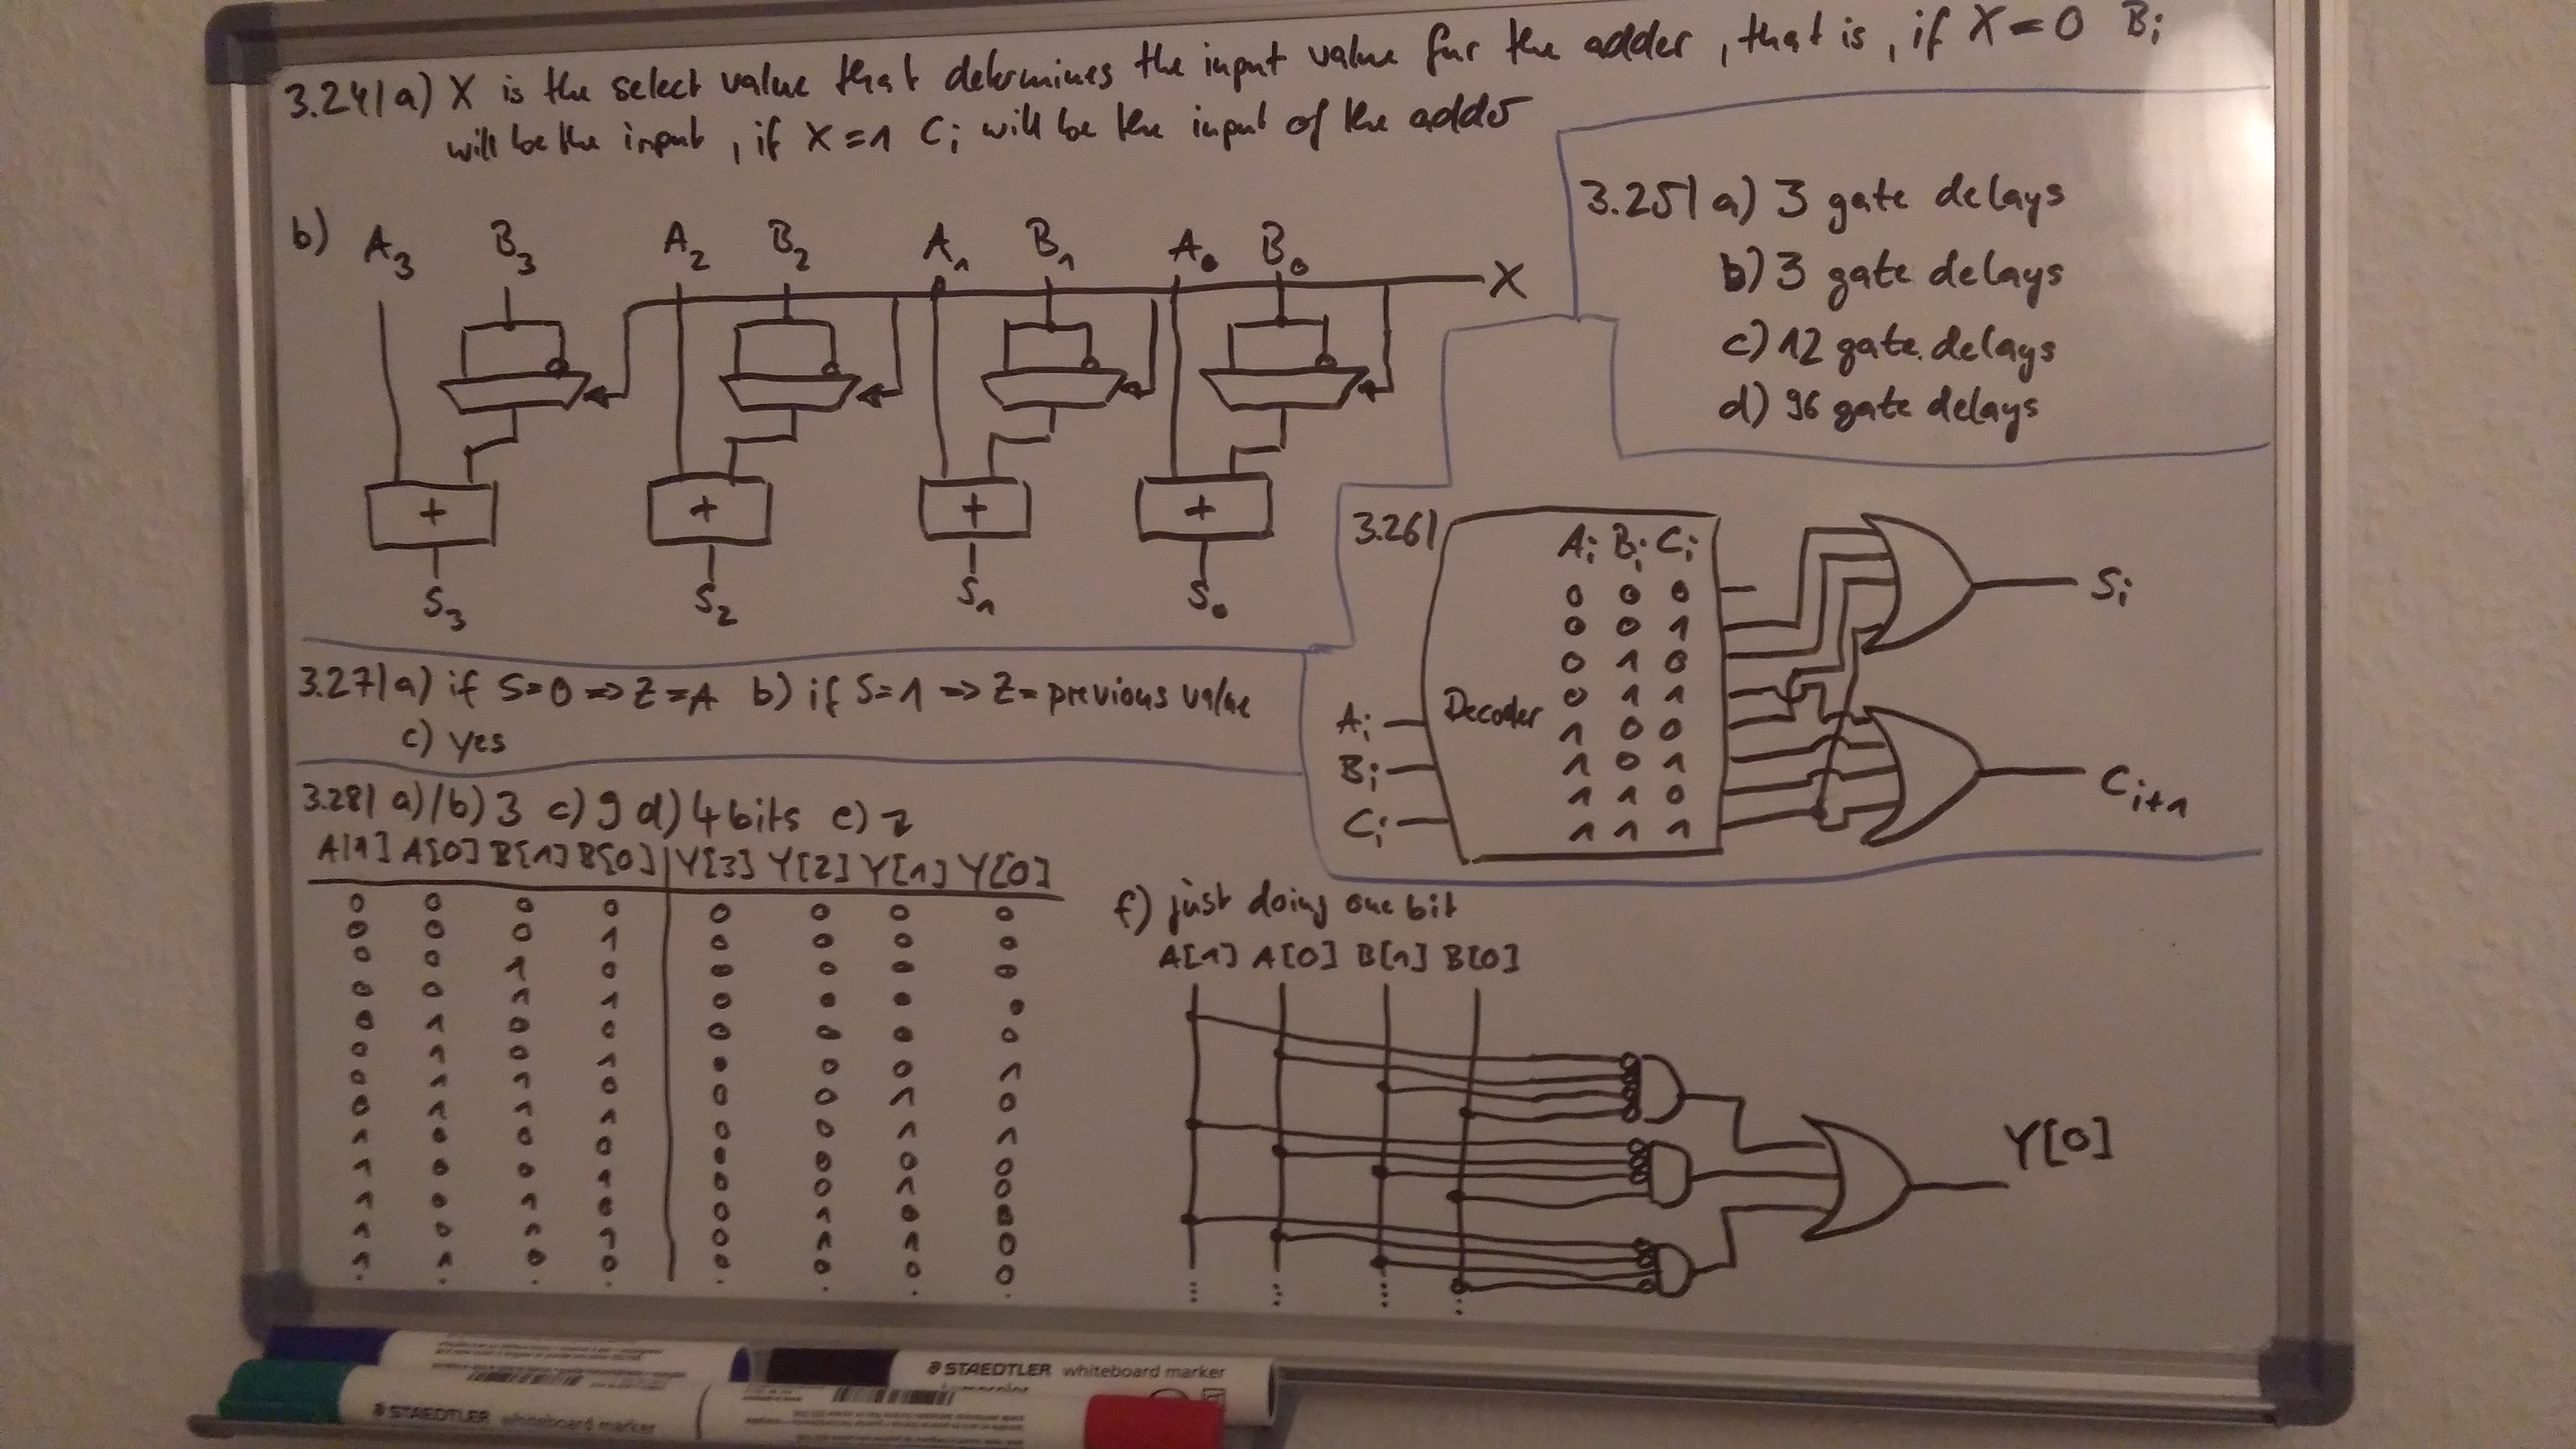 3.24/a) X is the select value that determines the input value for the adder, that is, if X=0 Bi
will be the input, if X=1 Ci will be the input of the adder
b) A3 B3 A2 B2 A1 B1 A0 B0
X
+ + + +
S3 S2 S1 S0
3.25/a) 3 gate delays
b) 3 gate delays
c) 12 gate delays
d) 96 gate delays
3.26/
Ai Bi Ci
0 0 0
0 0 1
0 1 0
0 1 1
1 0 0
1 0 1
1 1 0
1 1 1
Decoder
Ai
Bi
Ci
Si
Ci+1
3.27/a) if S=0 => Z=A b) if S=1 => Z=previous value
c) yes
3.28/ a)/b) 3 c) 9 d) 4 bits e)
A[1] A[0] B[1] B[0] Y[3] Y[2] Y[1] Y[0]
0 0 0 0 0 0 0 0
0 0 0 1 0 0 0 0
0 0 1 0 0 0 0 0
0 0 1 1 0 0 0 0
0 1 0 0 0 0 0 0
0 1 0 1 0 0 0 1
0 1 1 0 0 0 1 0
0 1 1 1 0 0 1 1
1 0 0 0 0 0 0 0
1 0 0 1 0 0 1 0
1 0 1 0 0 1 0 0
1 0 1 1 0 1 1 0
1 1 0 0 0 0 0 0
f) just doing one bit
A[1] A[0] B[1] B[0]
Y[0]
STAEDTLER whiteboard marker
STAEDTLER whiteboard marker